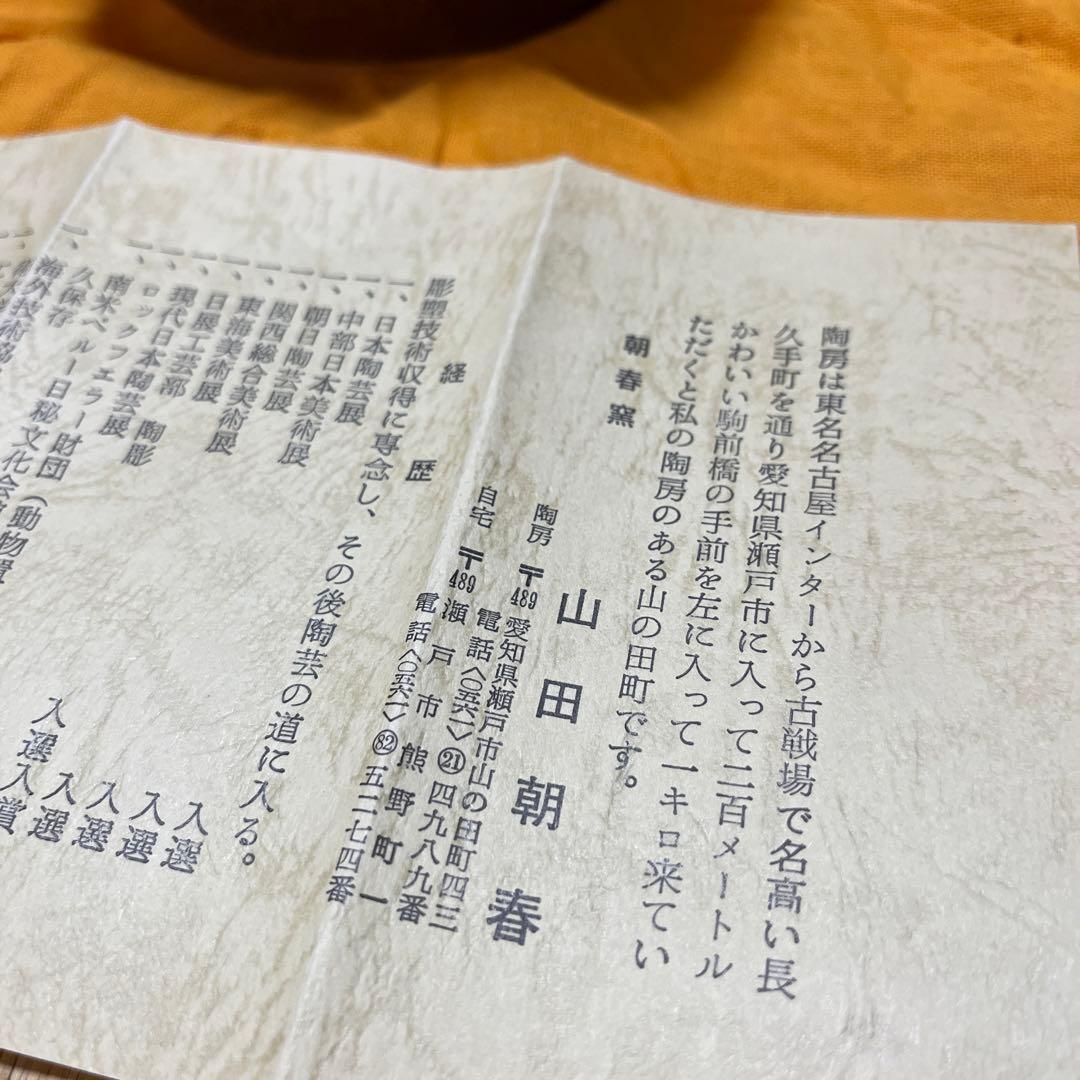 陶房は東名名古屋インターから古戦場で名高い長
久手町を通り愛知県瀬戸市に入って二百メートル
かわいい駒前橋の手前を左に入って一キロ来てい
ただくと私の陶房のある山の田町です。
朝春窯
山田朝春
陶房 〒489 愛知県瀬戸市山の田町四三
電話〈〇五六一〉㉑四九八九番
自宅 〒489 瀬戸市熊野町一
電話〈〇五六一〉82五二七四番
経歴
彫塑技術収得に専念し、その後陶芸の道に入る。
一、日本陶芸展 入選
一、中部日本美術展 入選
一、朝日陶芸展 入選
一、関西総合美術展 入選
一、東海美術展 入賞
一、日展工芸部 入選
一、現代日本陶芸展
一、ロックフェラー財団（動物置
陶彫
久保存
一、南米ペルー日秘文化会
一、海外技術協